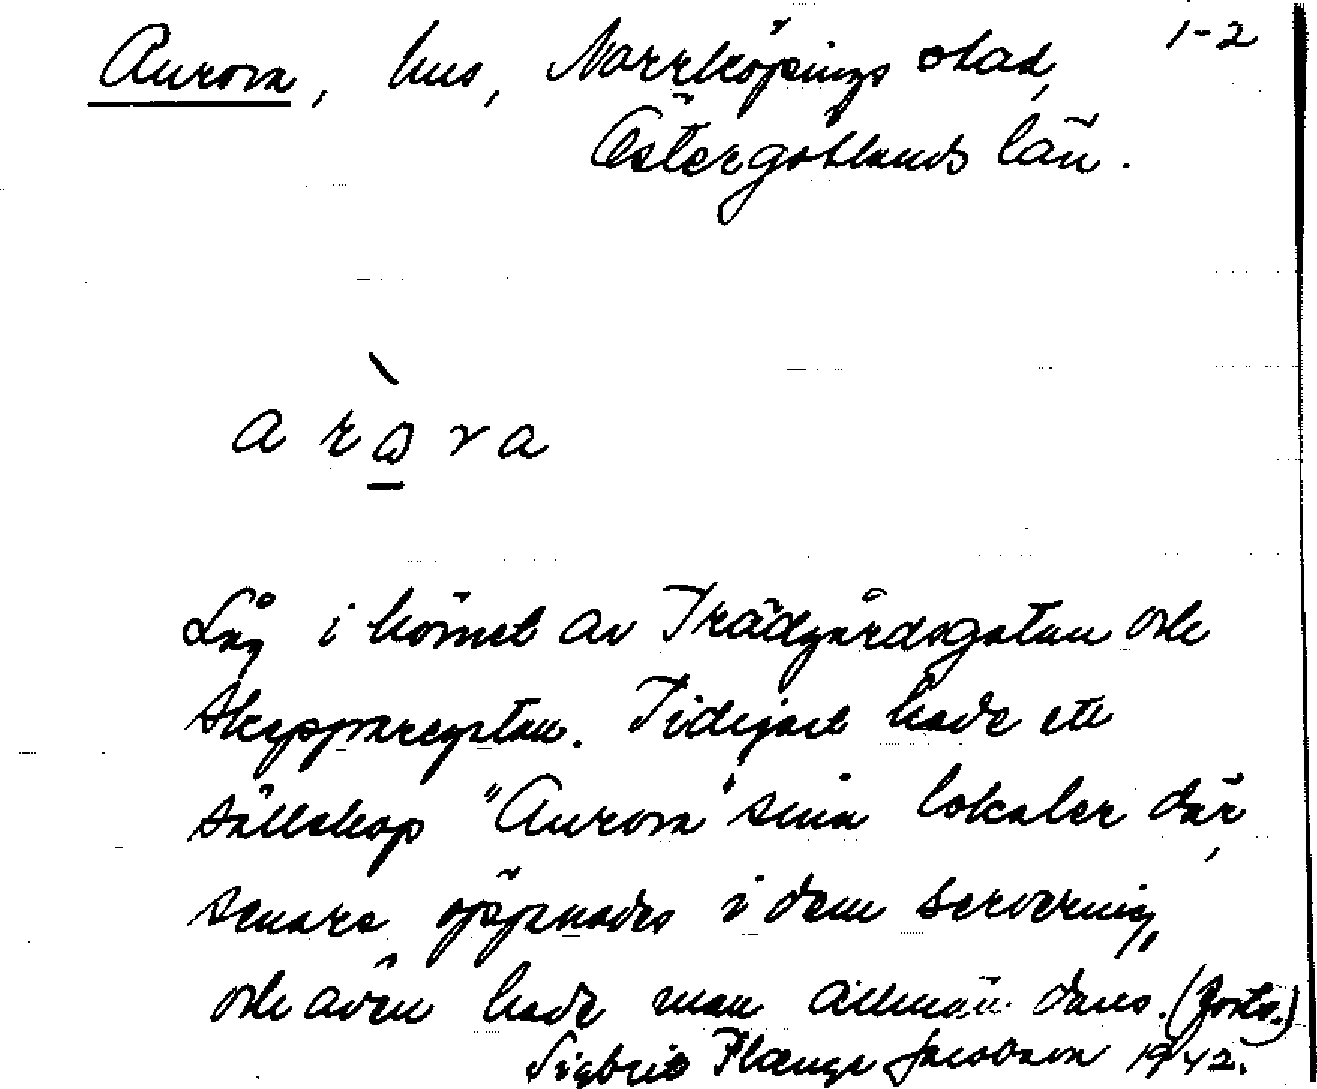 Aurora, hus, Norrköpings stad, 1-2
Östergötlands län.
aràra
Låg i hörnet av Trädgårdsgatan och
Skepparegatan. Tidigare hade ett
sällskap "Aurora" sina lokaler där,
senare öppnades i dem servering,
och även hade man allmän dans. (Forts.)
Sigbrit Plænge Jacobson 1942.